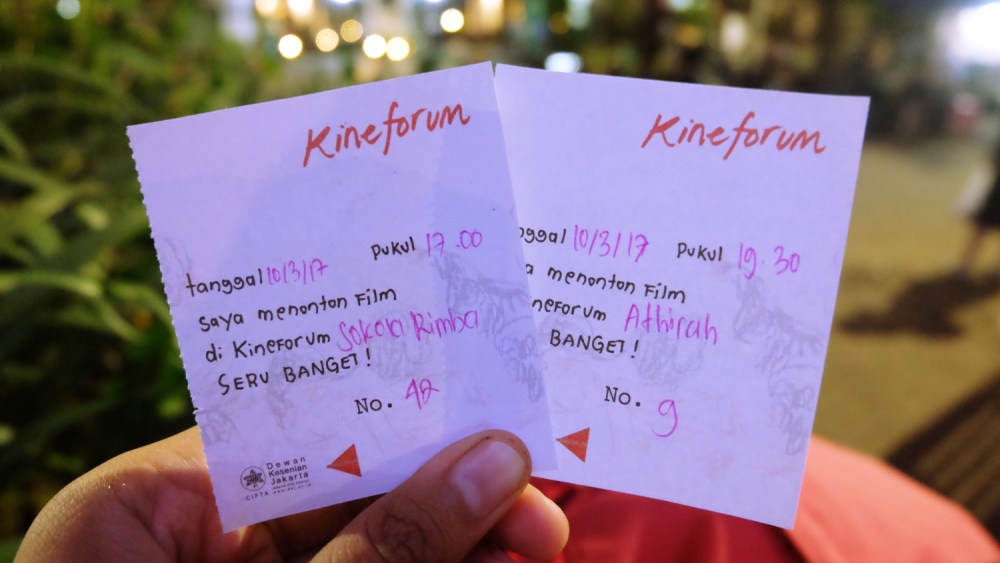 Kineforum
tanggal 10/3/17 pukul 17.00
saya menonton Film
di Kineforum Sokola Rimba
SERU BANGET!
No. 42
Dewan
Kesenian
Jakarta
CIPTA
Kineforum
nggal 10/3/17 pukul 19.30
a menonton Film
neforum Athirah
BANGET!
No. 9